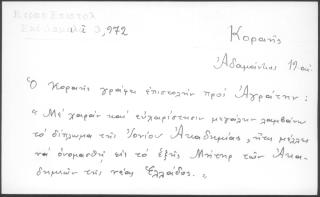 Κερας Επιστολ
3,972
Κοραής
Ἀδαμάντιος 19 αἰ.
Ὁ Κοραής γράφει ἐπιστολήν πρός Ἀγράτην :
« Μέ χαράν καί εὐχαρίστησιν μεγάλην λαμβάνω
τό δίπλωμα τῆς Ἰονίου Ἀκαδημίας, ἥτις μέλλει
νά ὀνομασθῇ εἰς τό ἑξῆς Μήτηρ τῶν Ἀκα-
δημιῶν τῆς νέας Ἑλλάδος. »